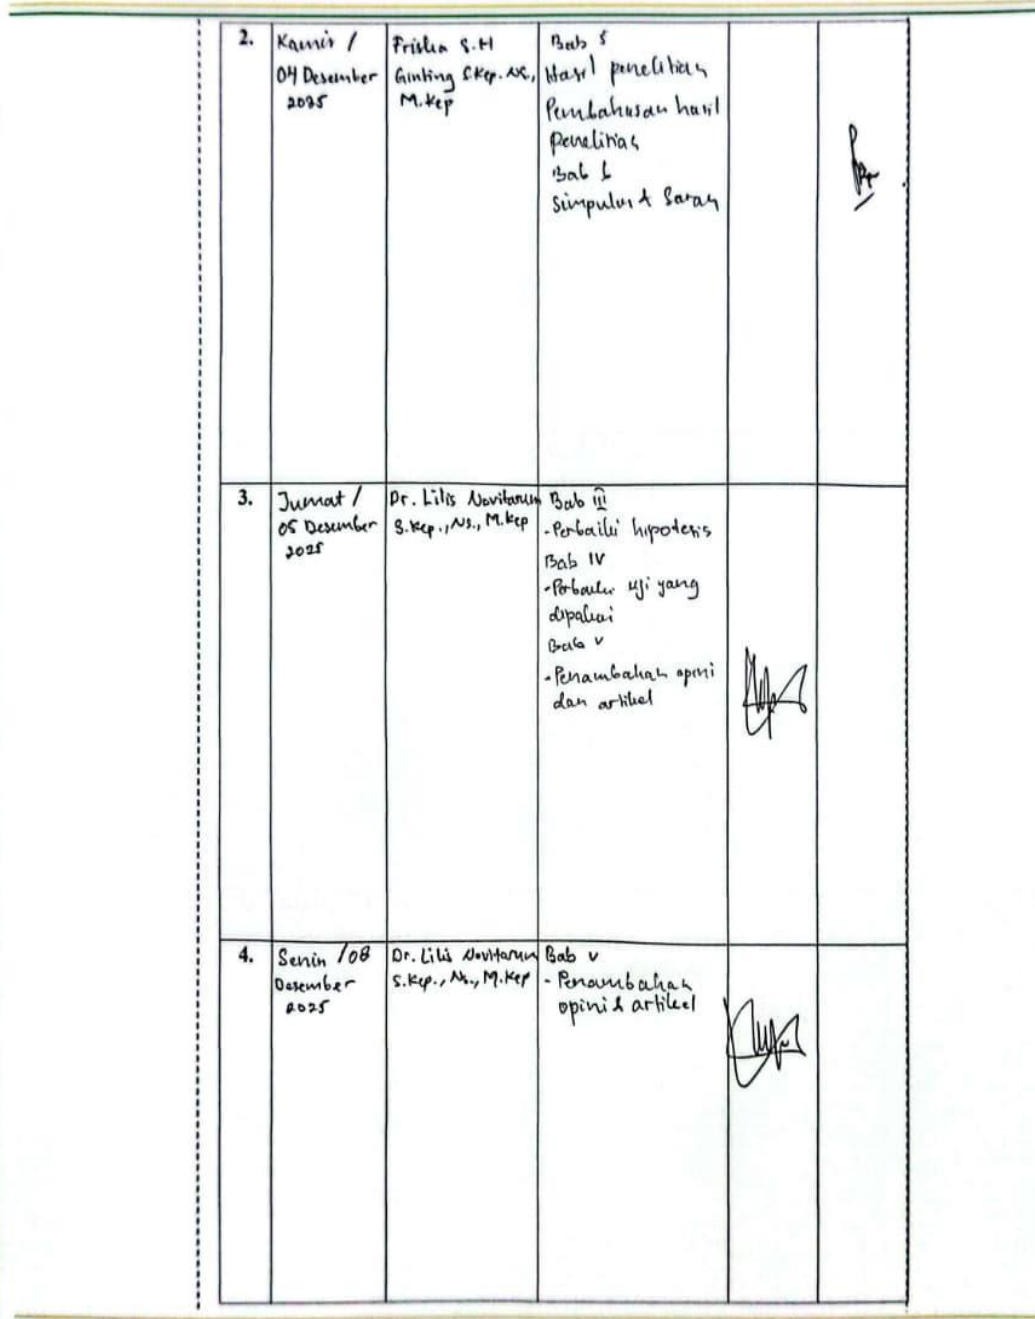 2.
Kamis /
04 Desember
2025
Friska S.H
Ginting S.Kep. Ns.,
M.Kep
Bab 5
Hasil penelitian
Pembahasan hasil
penelitian
Bab 6
Simpulan & Saran
3.
Jumat /
05 Desember
2025
Dr. Lilis Novitarum
S.Kep., Ns., M.Kep
Bab III
- Perbaiki hipotesis
Bab IV
- Perbaiki uji yang
dipakai
Bab V
- Penambahan opini
dan artikel
4.
Senin / 08
Desember
2025
Dr. Lilis Novitarum
S.Kep., Ns., M.Kep
Bab V
- Penambahan
opini & artikel